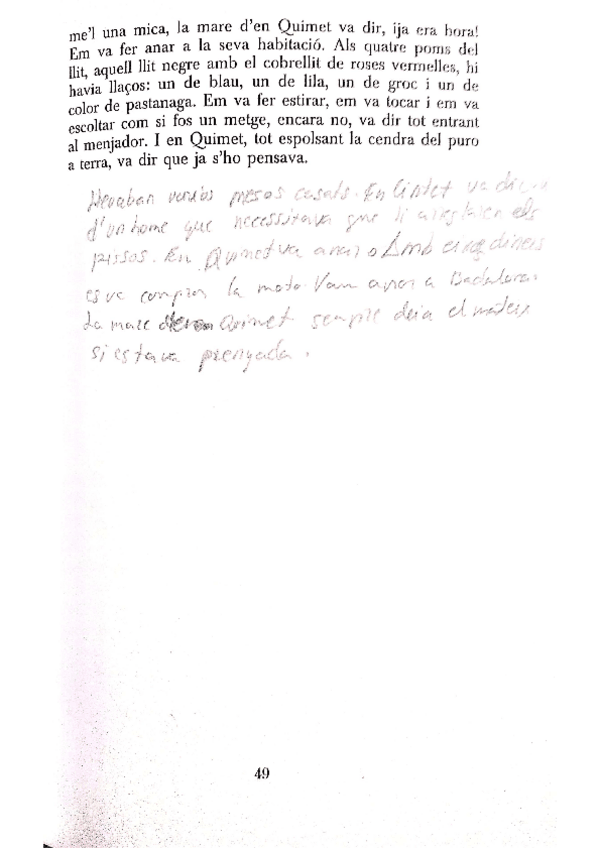 me'l una mica, la mare d'en Quimet va dir, ¡ja era hora!
Em va fer anar a la seva habitació. Als quatre poms del
llit, aquell llit negre amb el cobrellit de roses vermelles, hi
havia llaços: un de blau, un de lila, un de groc i un de
color de pastanaga. Em va fer estirar, em va tocar i em va
escoltar com si fos un metge, encara no, va dir tot entrant
al menjador. I en Quimet, tot espolsant la cendra del puro
a terra, va dir que ja s'ho pensava.
mesos casats. En Cintet va
d'un home que necessitava que li els
pisos. En Quimet va anar Amb diners
es va comprar la moto. Van anar a Badalona.
La mare Quimet sempre deia el mateix
si estava prenyada.
49